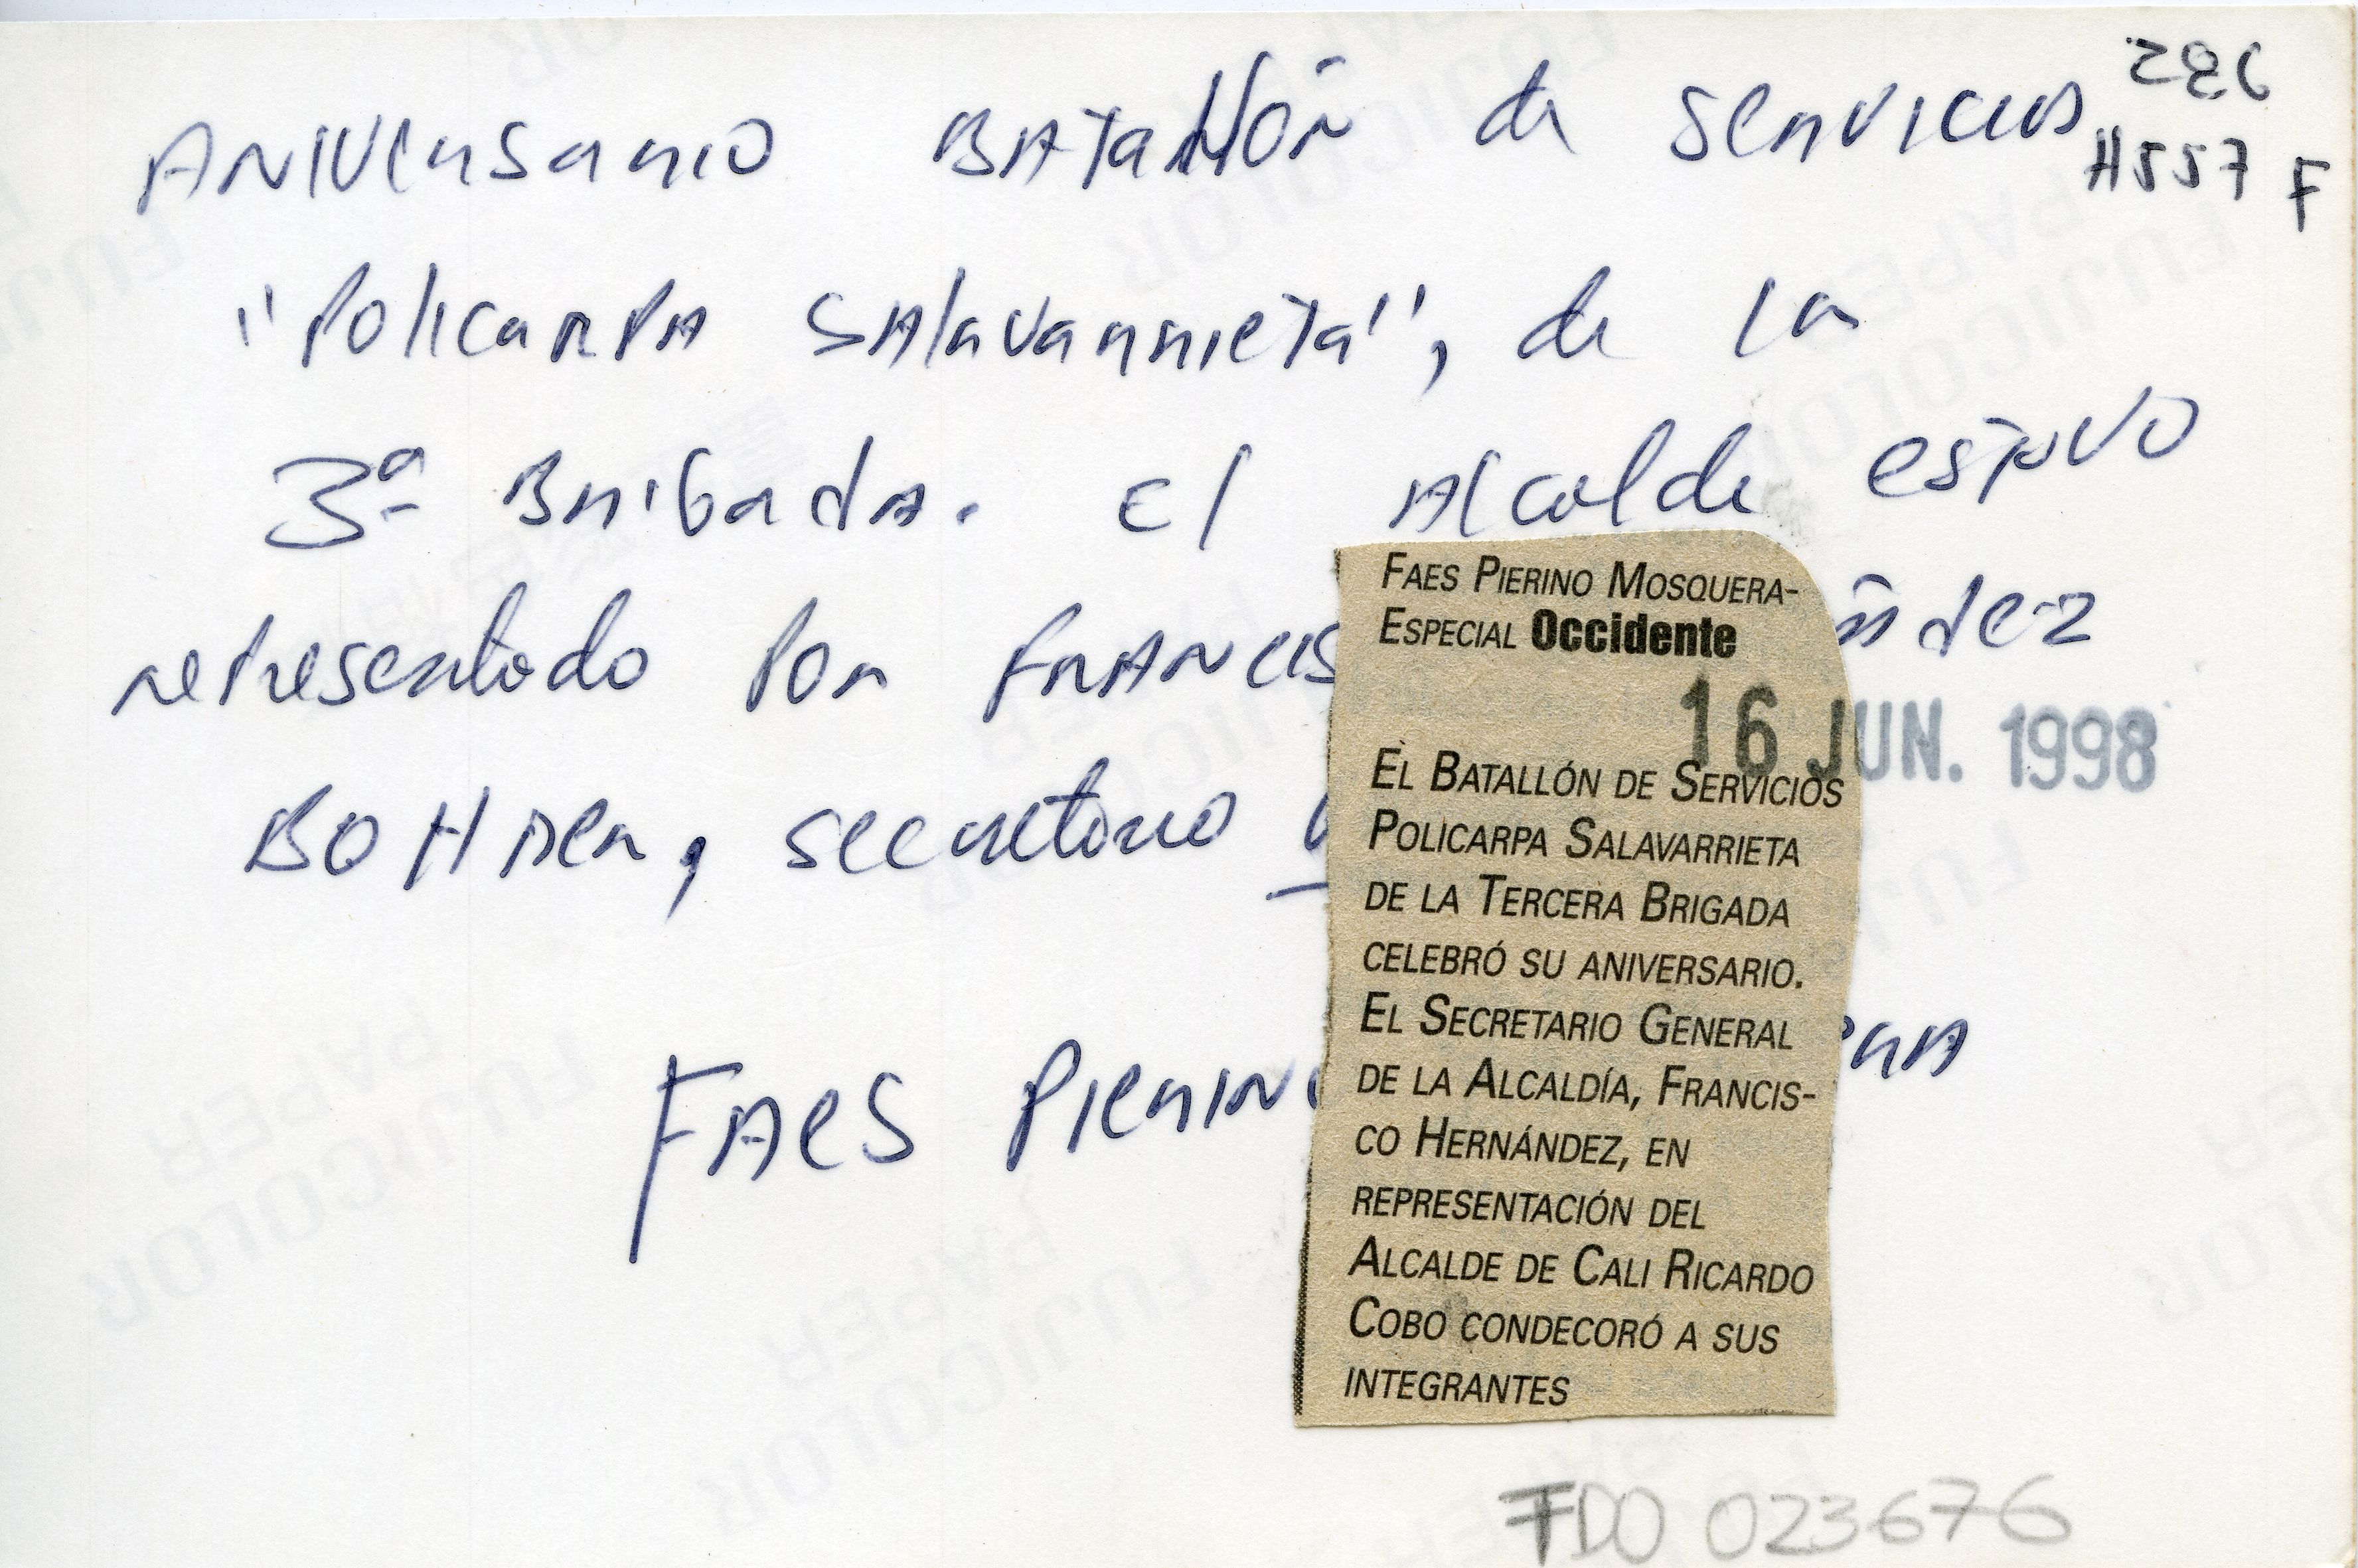 Aniversario Batallón de servicios
286
H557 F
"Policarpa Salavarrieta", de la
3ª Brigada. El Alcalde estuvo
representado por Francis ández
Bohmer, secretario
Faes Pierino era
FAES PIERINO MOSQUERA-
ESPECIAL Occidente
16 JUN. 1998
EL BATALLÓN DE SERVICIOS
POLICARPA SALAVARRIETA
DE LA TERCERA BRIGADA
CELEBRÓ SU ANIVERSARIO.
EL SECRETARIO GENERAL
DE LA ALCALDÍA, FRANCIS-
CO HERNÁNDEZ, EN
REPRESENTACIÓN DEL
ALCALDE DE CALI RICARDO
COBO CONDECORÓ A SUS
INTEGRANTES
FDO 023676